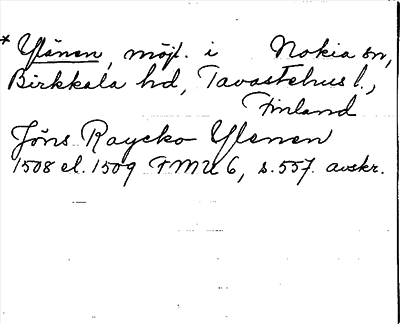 * Ylänen, möjl. i Nokia sn,
Birkkala hd, Tavastehus l.,
Finland
Jöns Raycko Ylenen
1508 el. 1509 FMU 6, s. 557. avskr.